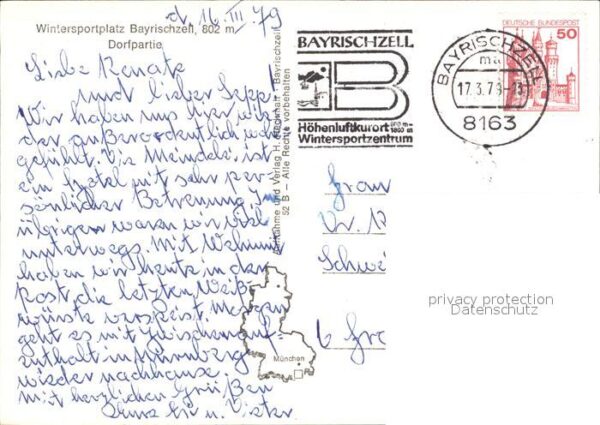 Wintersportplatz Bayrischzell, 802 m
Dorfpartie
d. 16. III 79
Liebe Renate
und lieber Sepp!
Wir haben uns hier wie
der außerordentlich wohl
gefühlt. Die Meindelei ist
ein Hotel mit sehr per-
sönlicher Betreuung. Im
übrigen waren wir viel
unterwegs. Mit Wehmut
haben wir heute in der
Post die letzten Weiß-
würste verspeist. Morgen
geht es mit Zwischenauf-
enthalt in Nürnberg
wieder nachhause.
Mit herzlichen Grüßen
u. Dieter
Aufnahme und Verlag H. Bayrischzell
52 B - Alle Rechte vorbehalten
München
BAYRISCHZELL
B
Höhenluftkurort 800 m-
Wintersportzentrum
BAYRISCHZELL
ma
17.3.79-13
8163
DEUTSCHE BUNDESPOST
50
privacy protection
Datenschutz